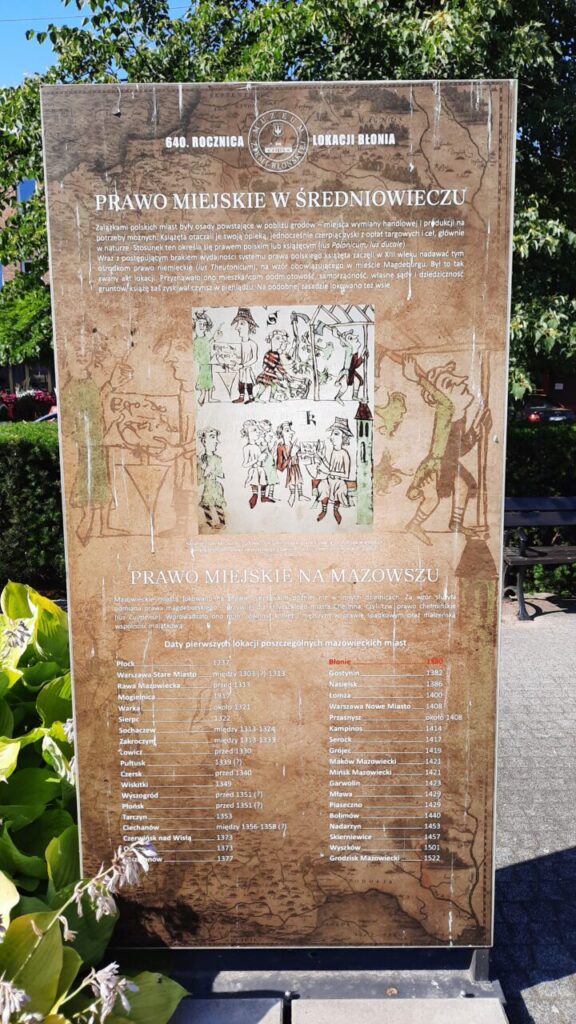 640. ROCZNICA LOKACJI BŁONIA
MUZEUM
ZIEMI BŁOŃSKIEJ
PRAWO MIEJSKIE W ŚREDNIOWIECZU
Zalążkami polskich miast były osady powstające w pobliżu grodów – miejsca wymiany handlowej i produkcji na
potrzeby możnych. Książęta otaczali je swoją opieką, jednocześnie czerpiąc zyski z opłat targowych i ceł, głównie
w naturze. Stosunek ten określa się prawem polskim lub książęcym (ius Polonicum, ius ducale).
Wraz z postępującym brakiem wydajności systemu prawa polskiego książęta zaczęli w XIII wieku nadawać tym
ośrodkom prawo niemieckie (ius Theutonicum), na wzór obowiązującego w mieście Magdeburgu. Był to tak
zwany akt lokacji. Przyznawało ono mieszkańcom podmiotowość, samorządność, własne sądy i dziedziczność
gruntów, książę zaś zyskiwał czynsz w pieniądzu. Na podobnej zasadzie lokowano też wsie.
PRAWO MIEJSKIE NA MAZOWSZU
Mazowieckie miasta lokowano na prawie niemieckim później niż w innych dzielnicach. Za wzór służyła
odmiana prawa magdeburskiego - przywilej dla krzyżackiego miasta Chełmna, czyli tzw. prawo chełmińskie
(ius Culmense). Wprowadzało ono m.in. równość kobiet i mężczyzn w prawie spadkowym oraz małżeńską
wspólność majątkową.
Daty pierwszych lokacji poszczególnych mazowieckich miast
Płock 1237
Warszawa Stare Miasto między 1303 (?) 1313
Rawa Mazowiecka przed 1313
Mogielnica 1317
Warka około 1321
Sierpc 1322
Sochaczew między 1313-1324
Zakroczym między 1313-1339
Łowicz przed 1330
Pułtusk 1339 (?)
Czersk przed 1340
Wiskitki 1349
Wyszogród przed 1351 (?)
Płońsk przed 1351 (?)
Tarczyn 1353
Ciechanów między 1356-1358 (?)
Czerwińsk nad Wisłą 1373
1373
1377
Błonie 1380
Gostynin 1382
Nasielsk 1386
Łomża 1400
Warszawa Nowe Miasto 1408
Przasnysz około 1408
Kampinos 1414
Serock 1417
Grójec 1419
Maków Mazowiecki 1421
Mińsk Mazowiecki 1421
Garwolin 1423
Mława 1429
Piaseczno 1429
Bolimów 1440
Nadarzyn 1453
Skierniewice 1457
Wyszków 1501
Grodzisk Mazowiecki 1522